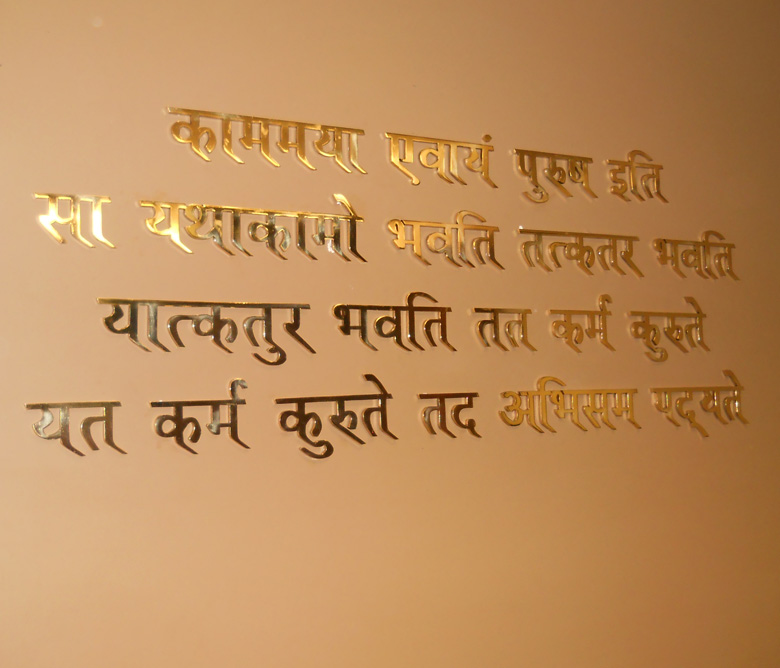 काममया एवायं पुरुष इति
सा यथाकामो भवति तत्कतर भवति
यात्कतुर भवति तत कर्म कुरुते
यत कर्म कुरुते तद अभिसम पद्यते